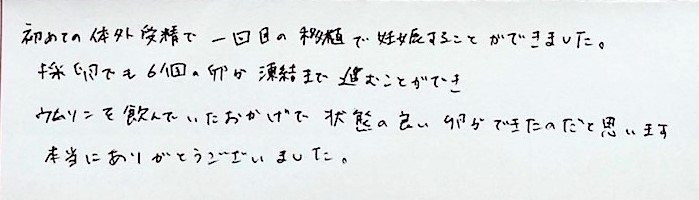 初めての体外受精で一回目の移植で妊娠することができました。
採卵でも6個の卵が凍結まで進むことができ
ウムリンを飲んでいたおかげで状態の良い卵ができたのだと思います
本当にありがとうございました。